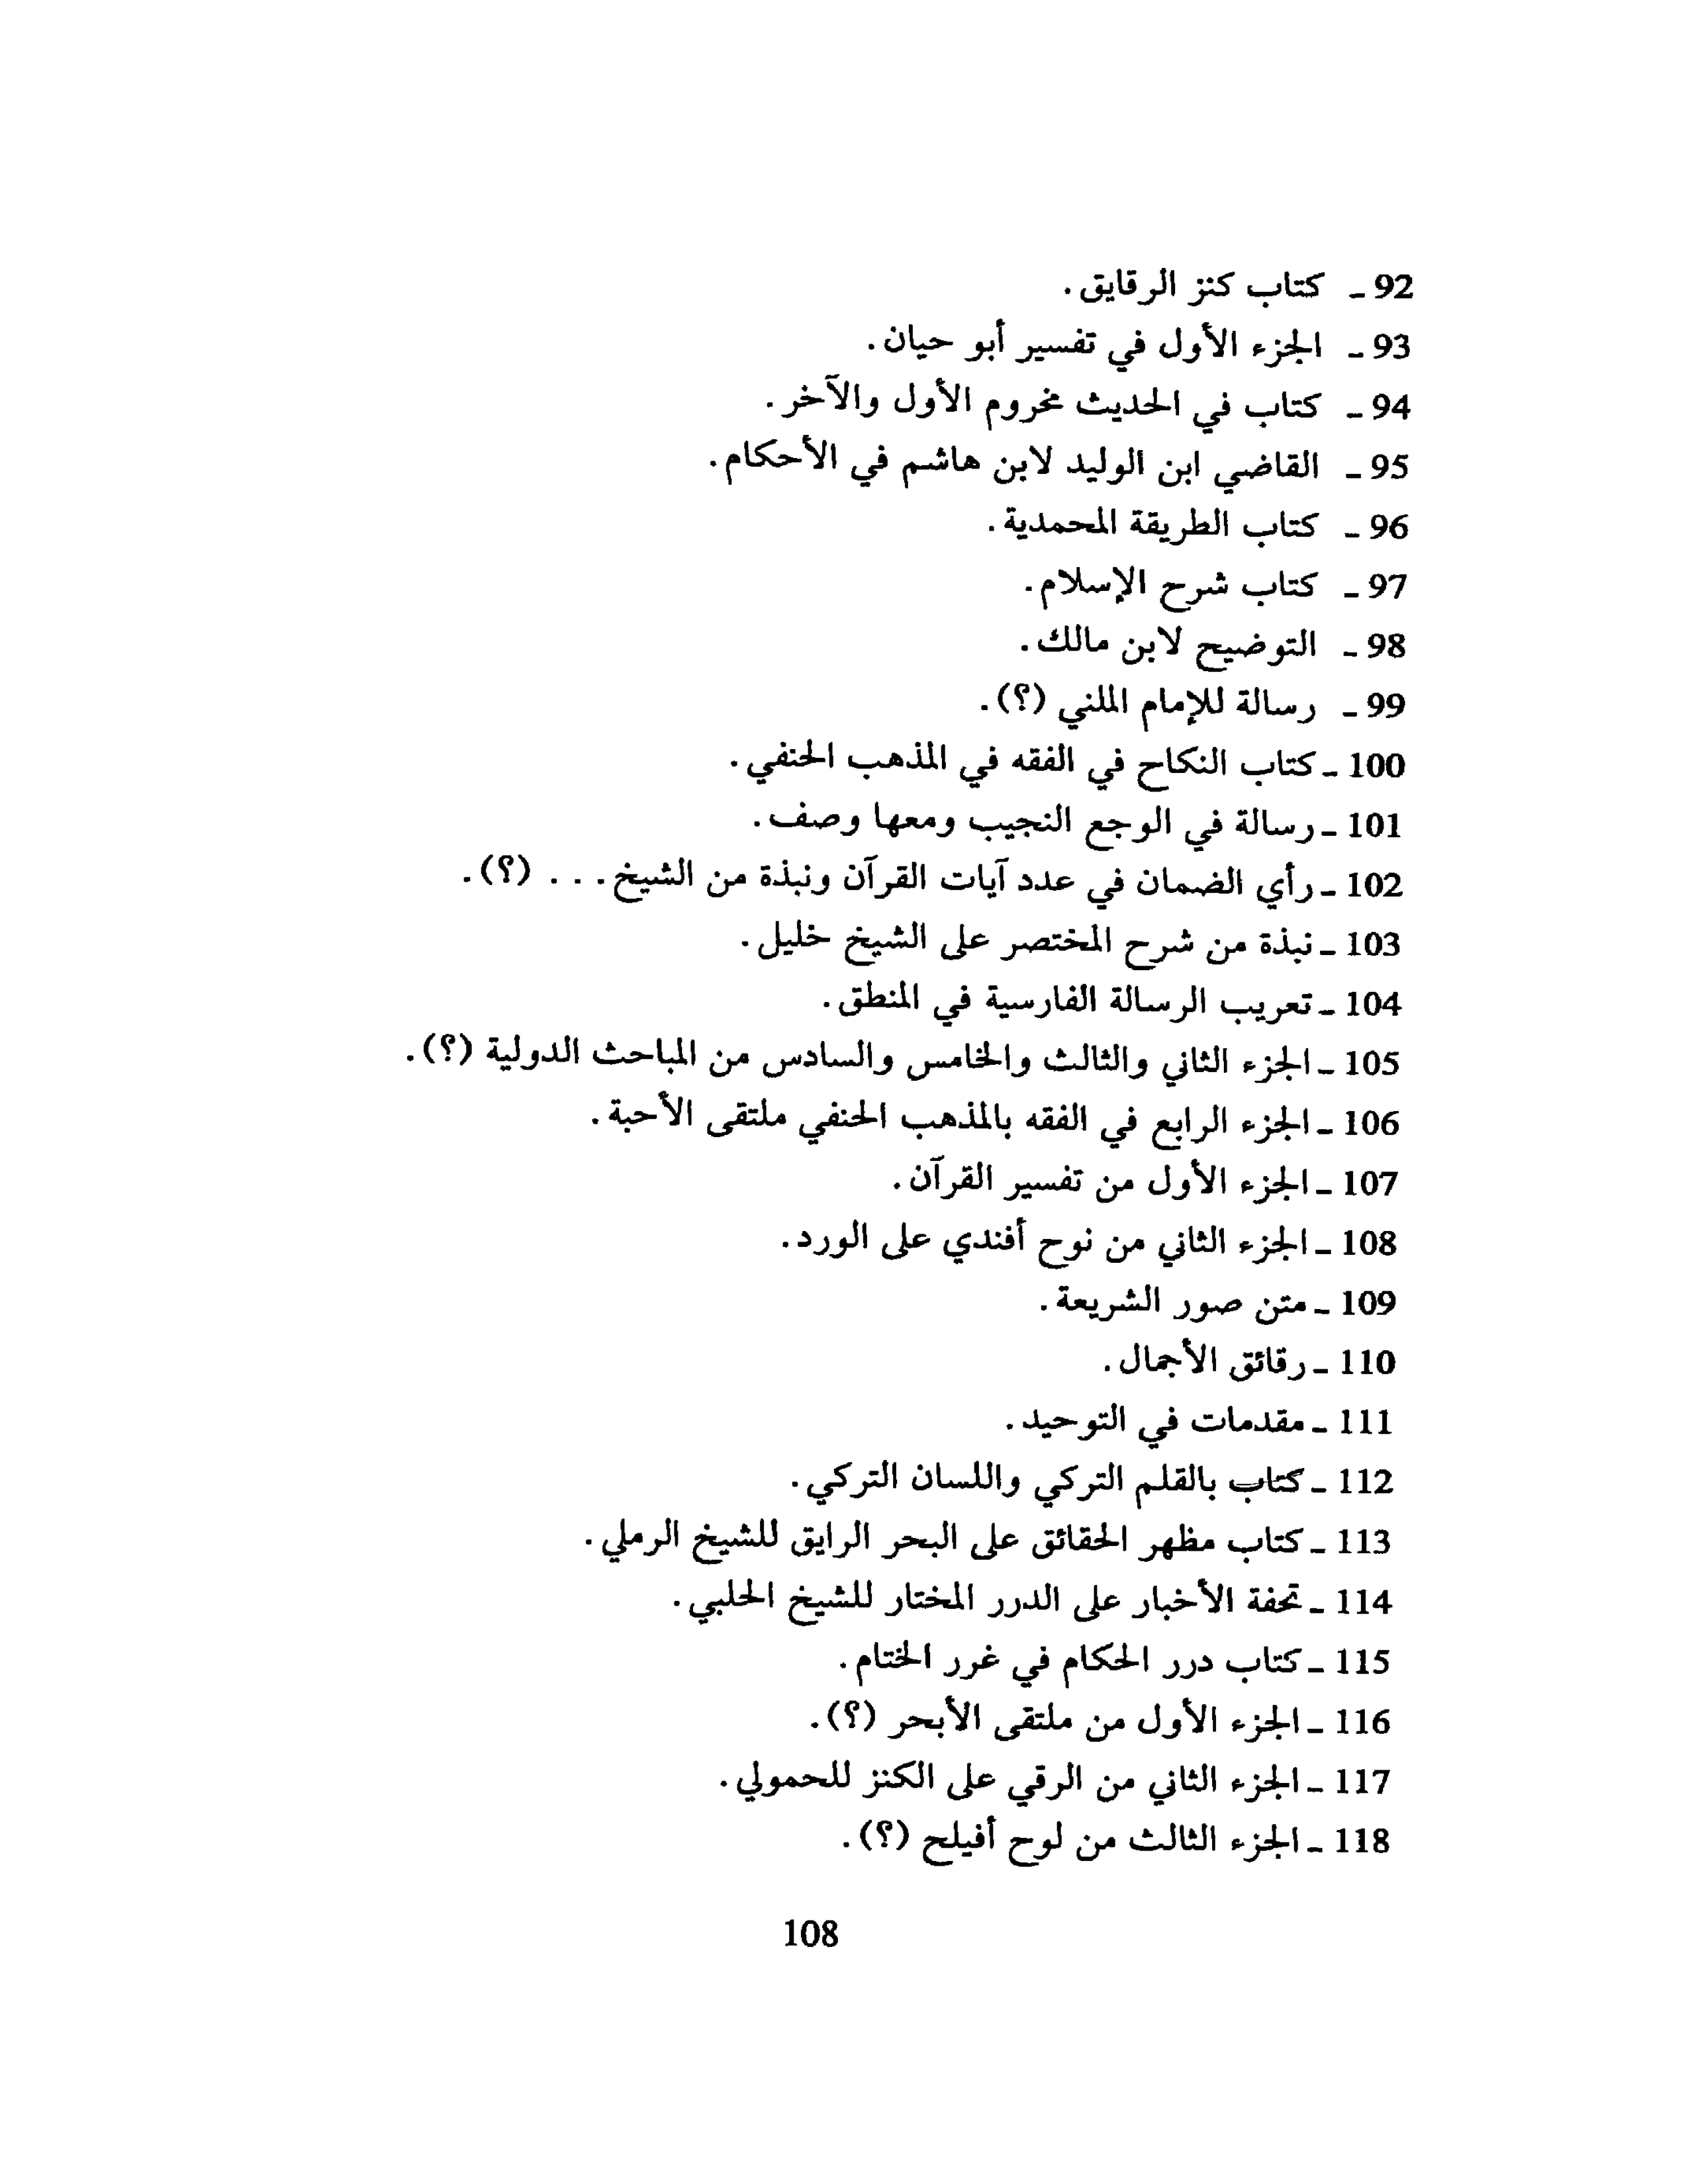 92 ـ كتاب كنز الرقايق.
93 ـ الجزء الأول في تفسير أبو حيان.
94 ـ كتاب في الحديث مخروم الأول والآخر.
95 ـ القاضي ابن الوليد لابن هاشم في الأحكام.
96 ـ كتاب الطريقة المحمدية.
97 ـ كتاب شرح الإسلام.
98 ـ التوضيح لابن مالك.
99 ـ رسالة للإمام الملني (؟).
100 ـ كتاب النكاح في الفقه في المذهب الحنفي.
101 ـ رسالة في الوجع النجيب ومعها وصف.
102 ـ رأي الضمان في عدد آيات القرآن ونبذة من الشيخ . . . (؟).
103 ـ نبذة من شرح المختصر على الشيخ خليل.
104 ـ تعريب الرسالة الفارسية في المنطق.
105 ـ الجزء الثاني والثالث والخامس والسادس من المباحث الدولية (؟).
106 ـ الجزء الرابع في الفقه بالمذهب الحنفي ملتقى الأحبة.
107 ـ الجزء الأول من تفسير القرآن.
108 ـ الجزء الثاني من نوح أفندي على الورد.
109 ـ متن صور الشريعة.
110 ـ رقائق الأجمال.
111 ـ مقدمات في التوحيد.
112 ـ كتاب بالقلم التركي واللسان التركي.
113 ـ كتاب مظهر الحقائق على البحر الرايق للشيخ الرملي.
114 ـ تحفة الأخبار على الدرر المختار للشيخ الحلبي.
115 ـ كتاب درر الحكام في غرر الختام.
116 ـ الجزء الأول من ملتقى الأبحر (؟).
117 ـ الجزء الثاني من الرقي على الكنز للحمولي.
118 ـ الجزء الثالث من لوح أفيلح (؟).
108